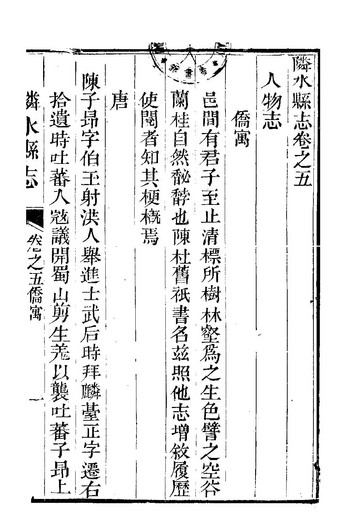 隣水縣志卷之五
人物志
僑寓
邑間有君子至止清標所樹林壑爲之生色譬之空谷
蘭桂自然馝馞也陳杜舊祇書名兹照他志增敘履歷
使閱者知其梗槪焉
唐
陳子昂字伯玉射洪人舉進士武后時拜麟臺正字遷右
拾遺時吐蕃人寇議開蜀山剪生羌以襲吐蕃子昂上
隣水縣志
卷之五僑寓
一